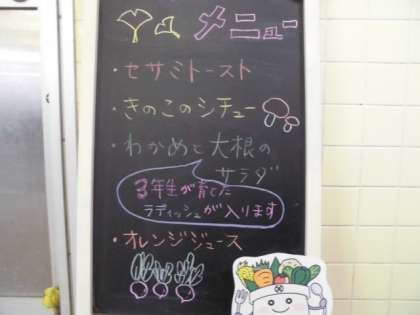 メニュー
・セサミトースト
・きのこのシチュー
・わかめと大根の
サラダ
3年生が育てた
ラディッシュが入ります
・オレンジジュース